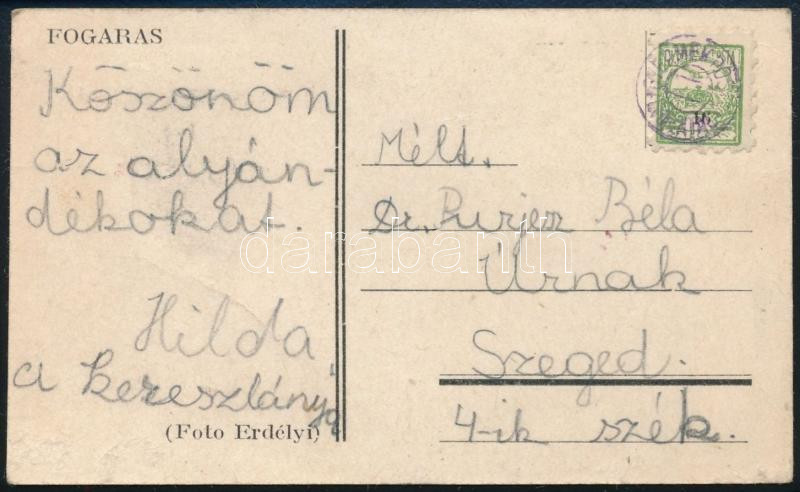 FOGARAS
Köszönöm
az alyán-
dékokat.
Hilda
a kereszlánya
(Foto Erdélyi)
Mélt.
Dr. Purjesz Béla
Úrnak
Szeged.
4-ik szék.
16
darabanth